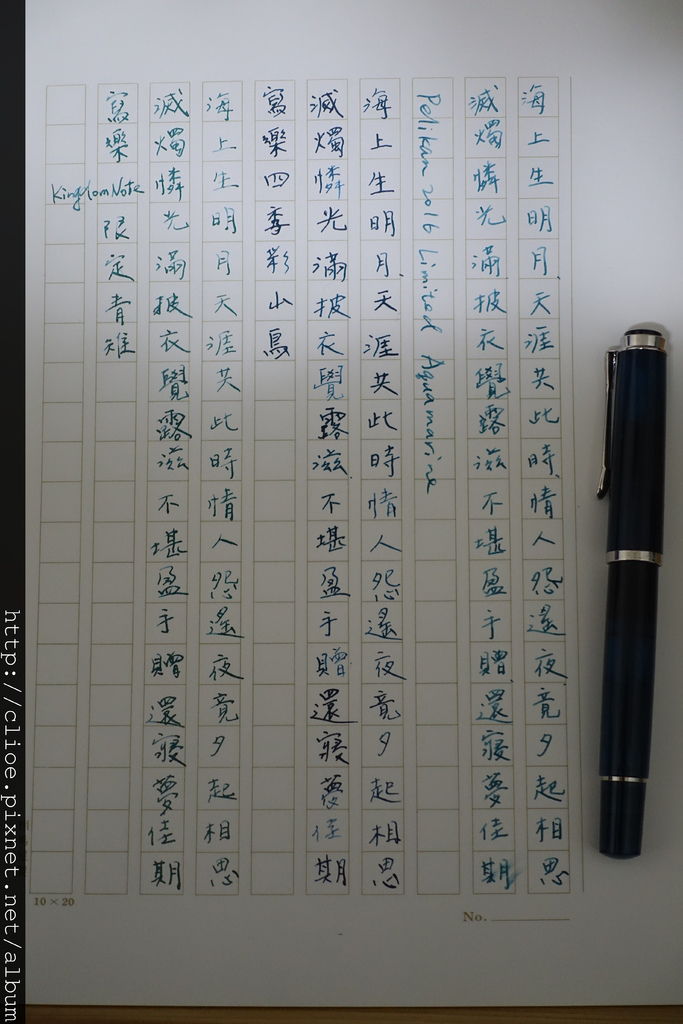 海上生明月天涯共此時情人怨遙夜竟夕起相思
滅燭憐光滿披衣覺露滋不堪盈手贈還寢夢佳期
Pelikan 2016 Limited Aquamarine
海上生明月天涯共此時情人怨遙夜竟夕起相思
滅燭憐光滿披衣覺露滋不堪盈手贈還寢夢佳期
寫樂四季彩山鳥
海上生明月天涯共此時情人怨遙夜竟夕起相思
滅燭憐光滿披衣覺露滋不堪盈手贈還寢夢佳期
寫樂 KingdomNote 限定青雉
10×20
No.
http://clioe.pixnet.net/album